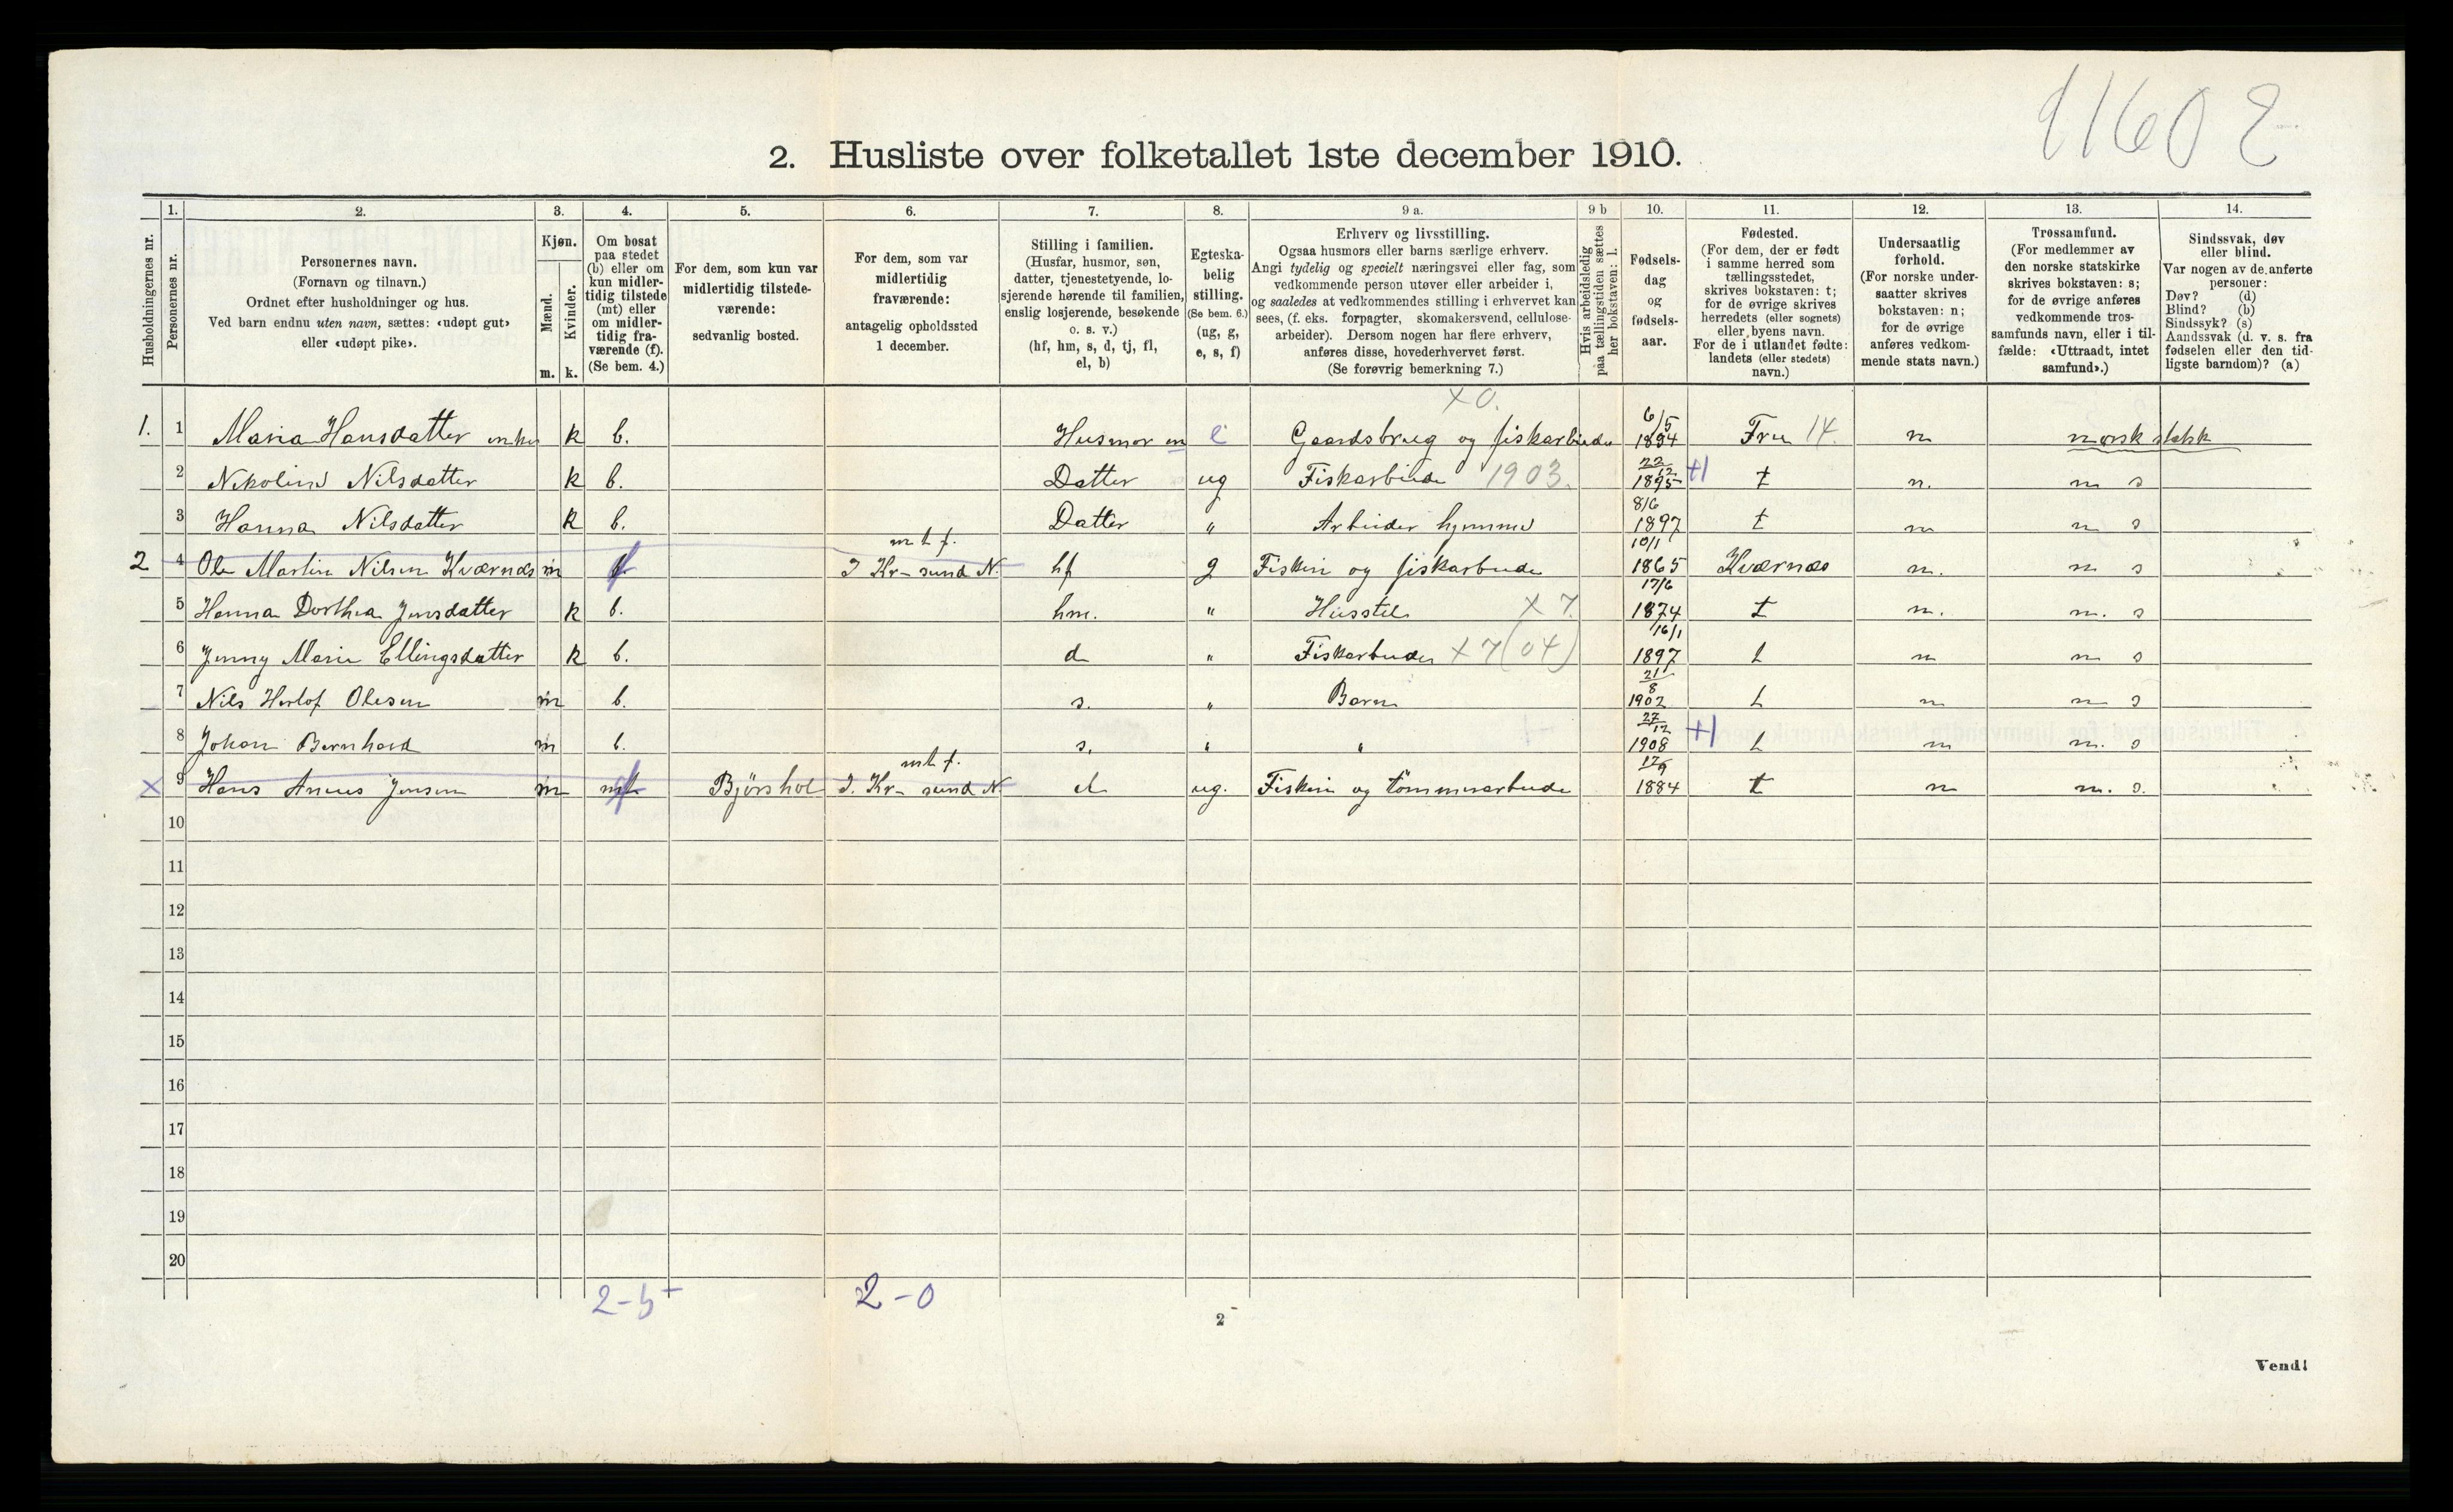 11602
2. Husliste over folketallet 1ste december 1910.
Husholdningernes nr.
1.
Personernes nr.
2.
Personernes navn.
(Fornavn og tilnavn.)
Ordnet efter husholdninger og hus.
Ved barn endnu uten navn, sættes: «udøpt gut»
eller «udøpt pike».
3.
Kjøn.
Mænd.
Kvinder.
m. k.
4.
Om bosat
paa stedet
(b) eller om
kun midler-
tidig tilstede
(mt) eller
om midler-
tidig fra-
værende (f).
(Se bem. 4.)
5.
For dem, som kun var
midlertidig tilstede-
værende:
sedvanlig bosted.
6.
For dem, som var
midlertidig
fraværende:
antagelig opholdssted
1 december.
7.
Stilling i familien.
(Husfar, husmor, søn,
datter, tjenestetyende, lo-
sjerende hørende til familien,
enslig losjerende, besøkende
o. s. v.)
(hf, hm, s, d, tj, fl,
el, b)
8.
Egteska-
belig
stilling.
(Se bem. 6.)
(ug, g,
e, s, f)
9 a.
Erhverv og livsstilling.
Ogsaa husmors eller barns særlige erhverv.
Angi tydelig og specielt næringsvei eller fag, som
vedkommende person utøver eller arbeider i,
og saaledes at vedkommendes stilling i erhvervet kan
sees, (f. eks. forpagter, skomakersvend, cellulose-
arbeider). Dersom nogen har flere erhverv,
anføres disse, hovederhvervet først.
(Se forøvrig bemerkning 7.)
9 b
Hvis arbeidsledig
paa tællingstiden sættes
her bokstaven: l.
10.
Fødsels-
dag
og
fødsels-
aar.
11.
Fødested.
(For dem, der er født
i samme herred som
tællingsstedet,
skrives bokstaven: t;
for de øvrige skrives
herredets (eller sognets)
eller byens navn.
For de i utlandet fødte:
landets (eller stedets)
navn.)
12.
Undersaatlig
forhold.
(For norske under-
saatter skrives
bokstaven: n;
for de øvrige
anføres vedkom-
mende stats navn.)
13.
Trossamfund.
(For medlemmer av
den norske statskirke
skrives bokstaven: s;
for de øvrige anføres
vedkommende tros-
samfunds navn, eller i til-
fælde: «Uttraadt, intet
samfund».)
14.
Sindssvak, døv
eller blind.
Var nogen av de anførte
personer:
Døv? (d)
Blind? (b)
Sindssyk? (s)
Aandssvak (d. v. s. fra
fødselen eller den tid-
ligste barndom)? (a)
x 0.
1. 1 Maria Hansdatter enke k b. Husmor en e Gaardsbrug og fiskarbeider 6/5 Fru 14. n norsk statsk
2 Nikoline Nilsdatter k b. Datter ug Fiskarbeide 1903. 22/12 1895 +1 t n. n s
3 Hanna Nilsdatter k b. Datter " Arbeider hjemme 8/6 1897 t n n s
m t f.
2 4 Ole Martin Nilsen Kværnæs m f I Kr-sund N. hf g Fiskeri og fiskarbeide 10/1 1865 Kværnæs n. n s
5 Hanna Dorthea Jensdatter k b. hm. " Husstel x 7. 17/6 1874 t n. n. s
6 Jenny Marie Ellingsdatter k b. d " Fiskarbeider x 7 (04) 16/1 1897 t n n s
7 Nils Herlof Olesen m b. s. " Barn 21/8 1902 t n n s
8 Johan Bernhard m b. s. " " 27/12 1908 +1 t n n. s
mt f.
x 9 Hans Jensen m f Bjørshol I. Kr-sund N el ug. Fiskeri og tømmerarbeide 17/9 1884 t n n. s.
10
11
12
13
14
15
16
17
18
19
20
2-5 2-0
2
Vend!